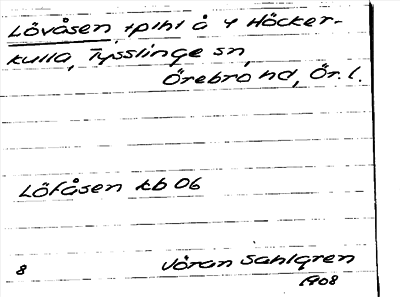 Lövåsen, tpiht å 4 Höcker-
kulla, Tysslinge sn,
Örebro hd, Ör. l.
Löfåsen kb 06
Jöran Sahlgren
8
1908